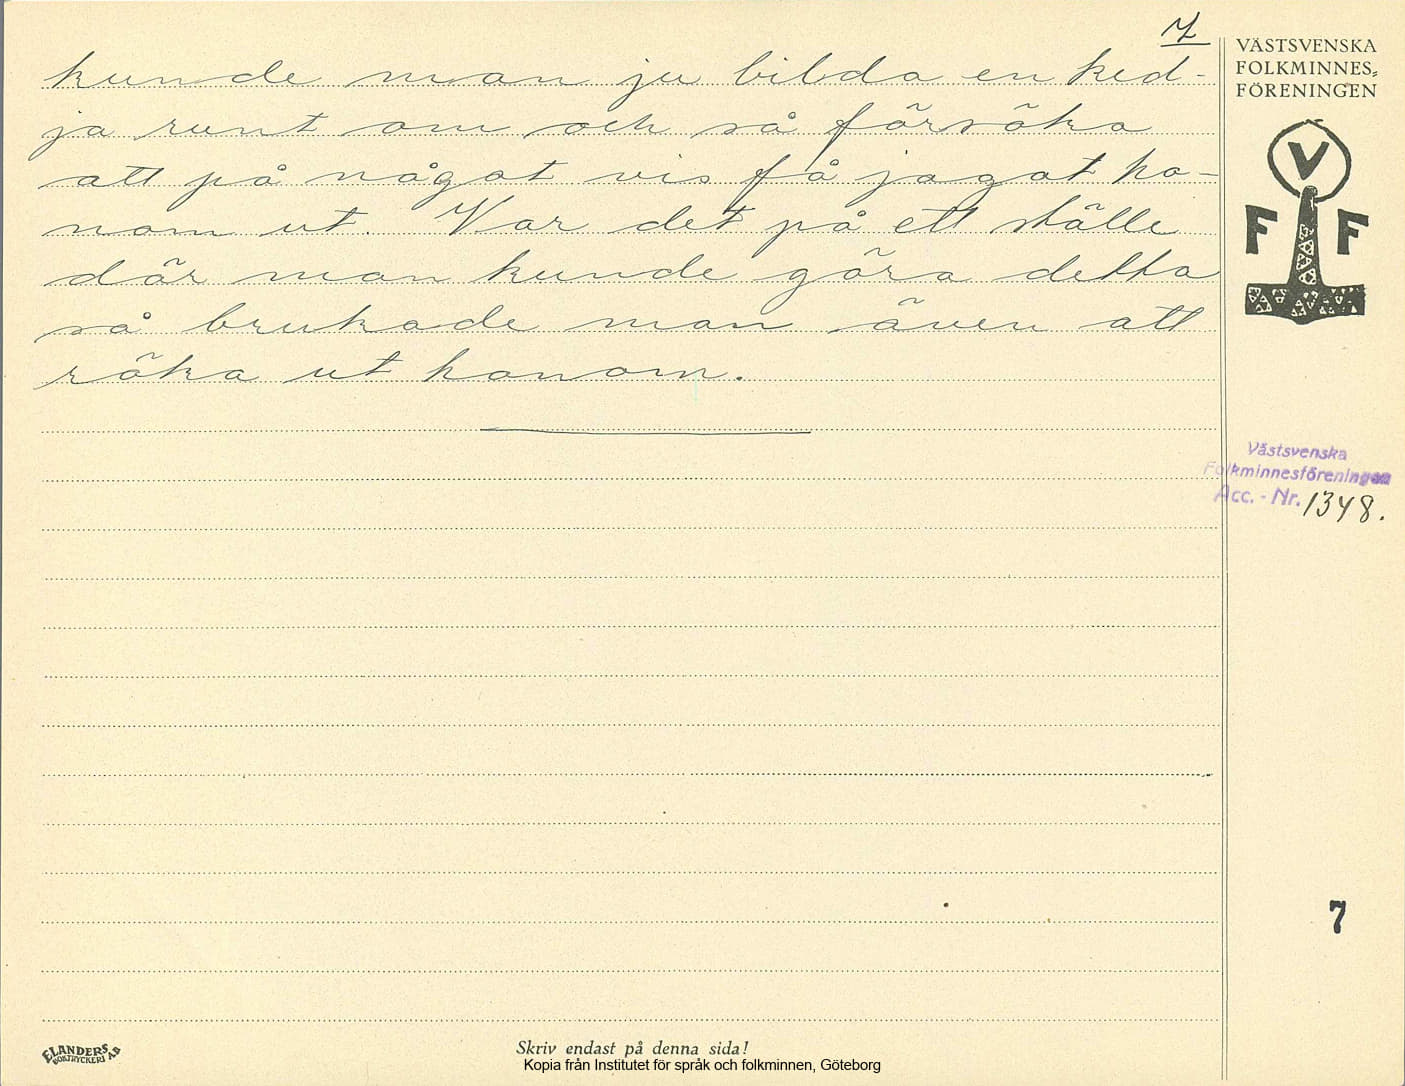 7
kunde man ju bilda en ked-
ja runt om och så försöka
att på något vis få jagat ho-
nom ut. Var det på ett ställe
där man kunde göra detta
så brukade man även att
röka ut honom.
VÄSTSVENSKA
FOLKMINNES=
FÖRENINGEN
V
F F
Västsvenska
Folkminnesföreningen
Acc. - Nr. 1348.
7
ELANDERS
BOKTRYCKERI AB
Skriv endast på denna sida!
Kopia från Institutet för språk och folkminnen, Göteborg